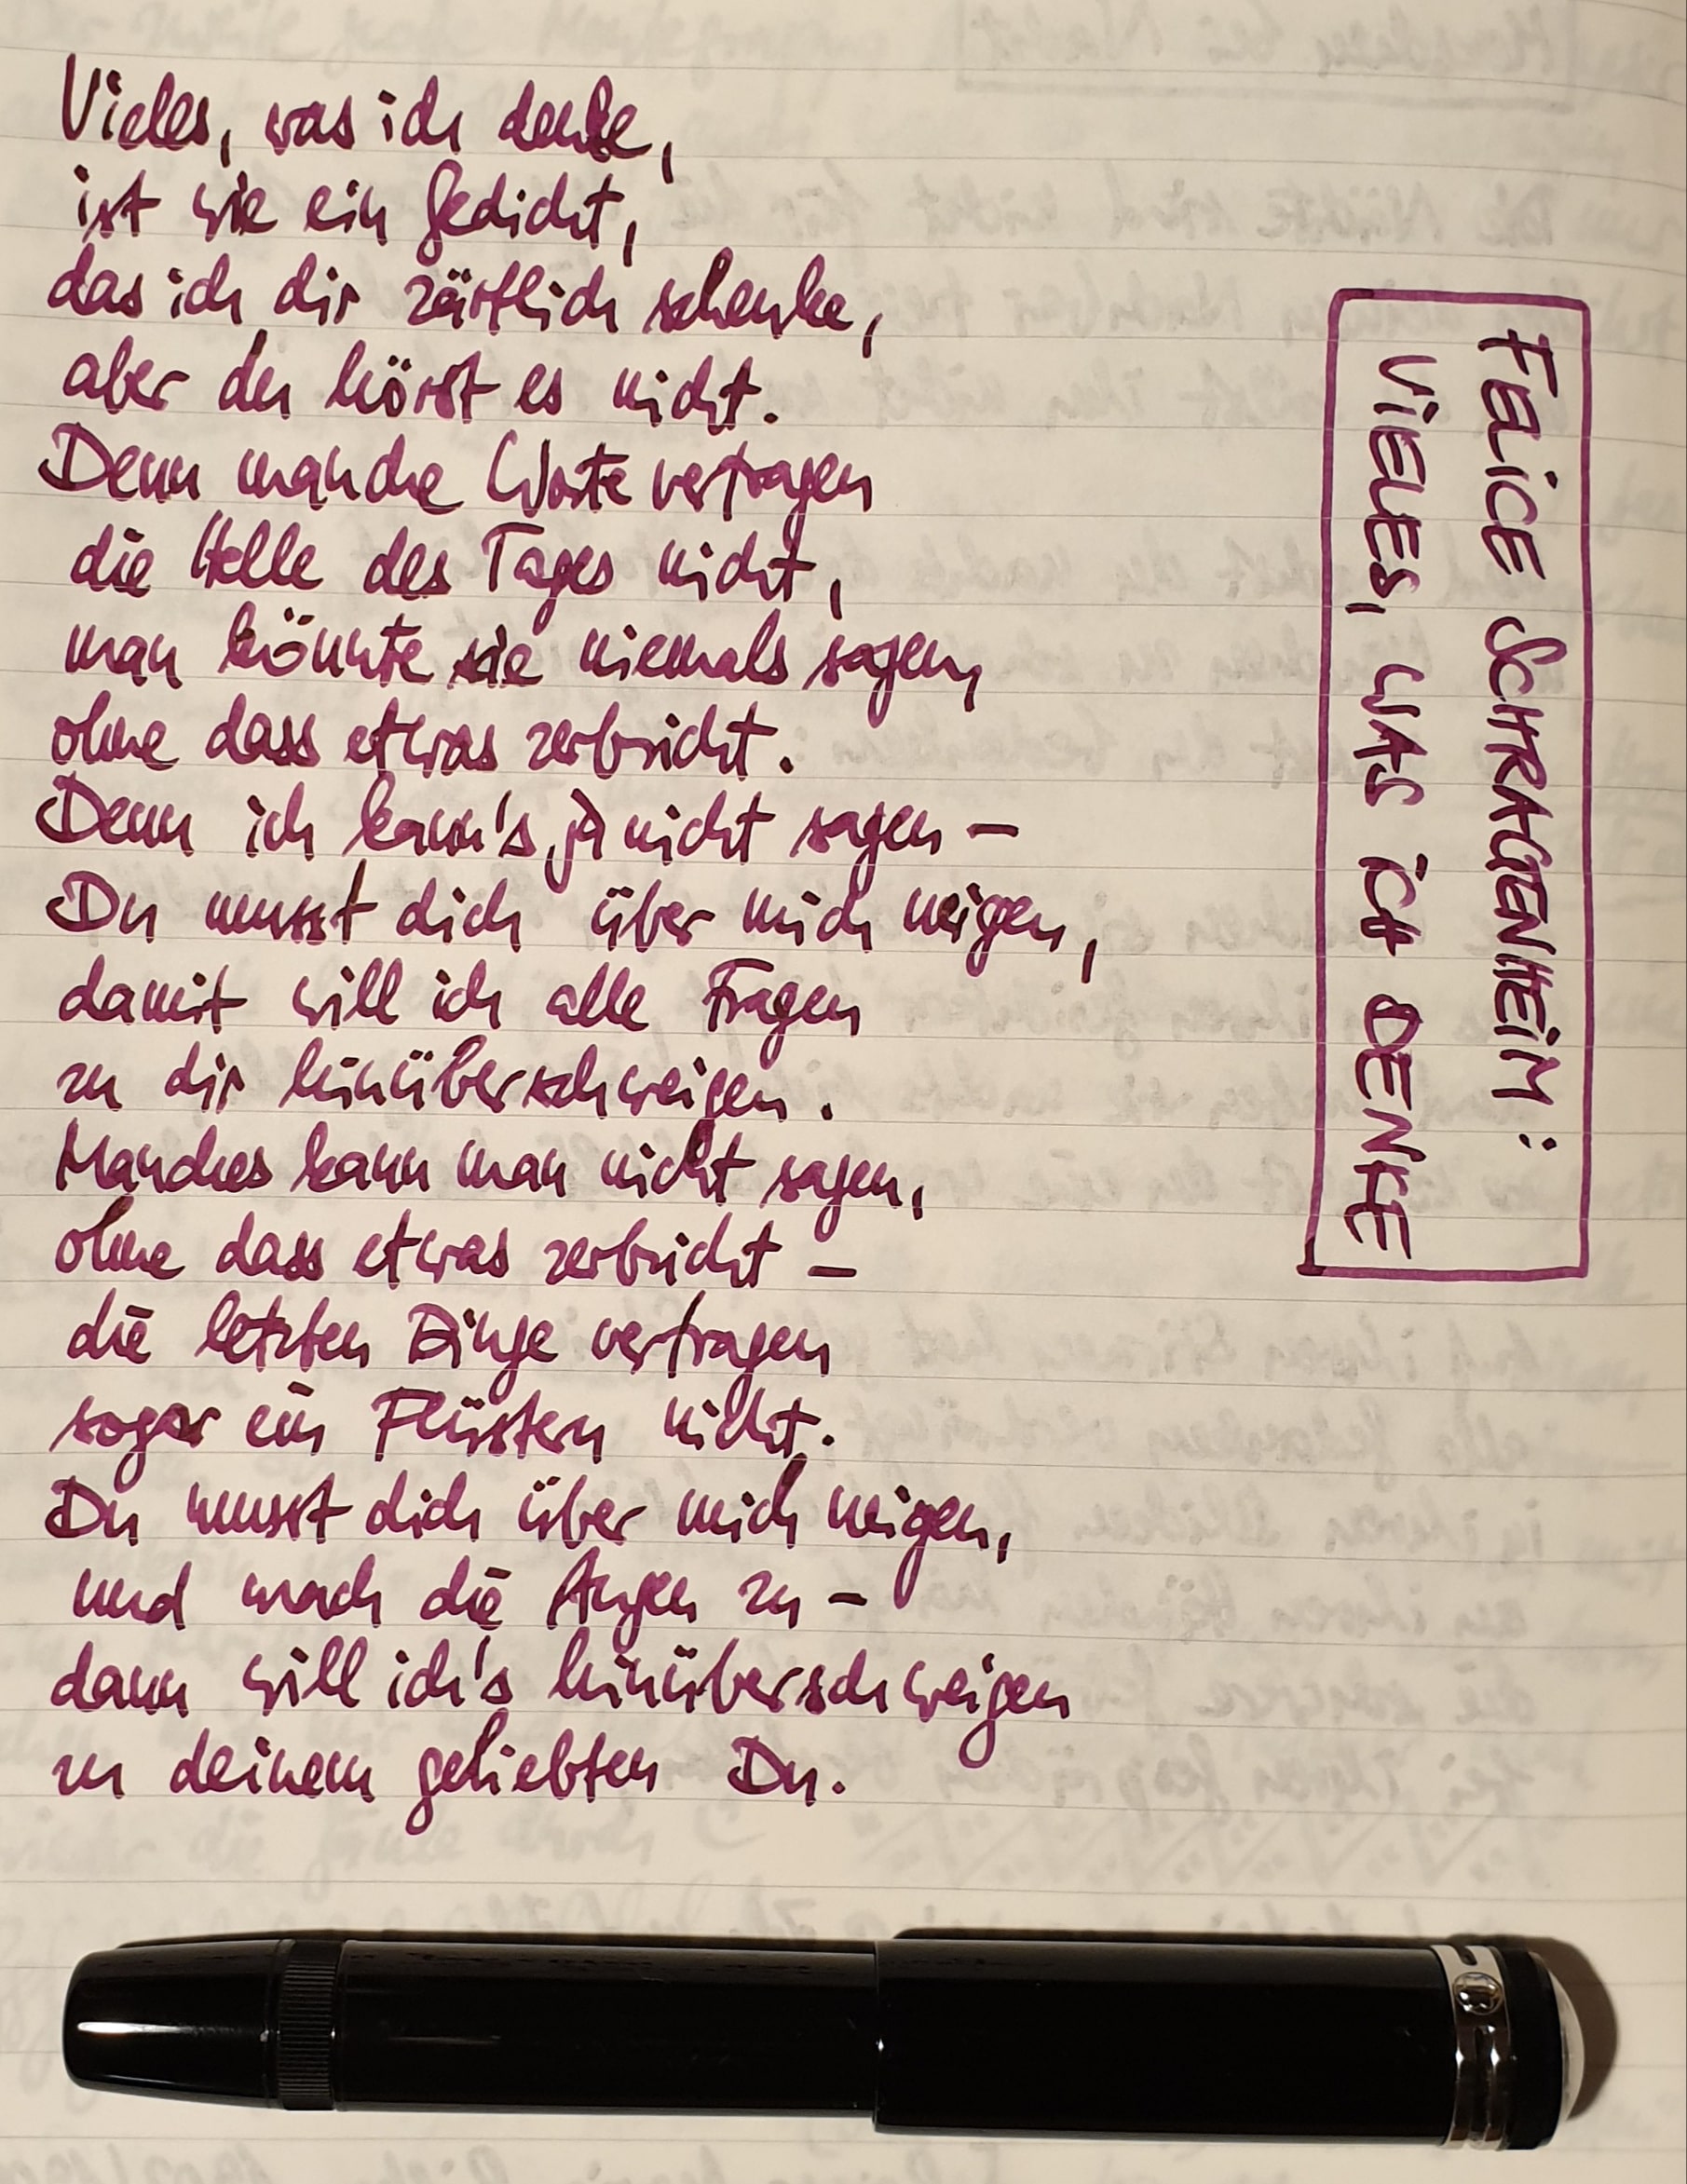 Vieles, was ich denke,
ist wie ein Gedicht,
das ich dir zärtlich schenke,
aber du hörst es nicht.
Denn manche Worte vertragen
die Helle des Tages nicht,
man könnte sie niemals sagen,
ohne dass etwas zerbricht.
Denn ich kann's ja nicht sagen –
Du musst dich über mich neigen,
damit will ich alle Fragen
zu dir hinüberschweigen.
Manches kann man nicht sagen,
ohne dass etwas zerbricht –
die letzten Dinge vertragen
sogar ein Flüstern nicht.
Du musst dich über mich neigen,
und mach die Augen zu –
dann will ich's hinüberschweigen
zu deinem geliebten Du.
FELICE SCHRAGENHEIM:
VIELES, WAS ICH DENKE